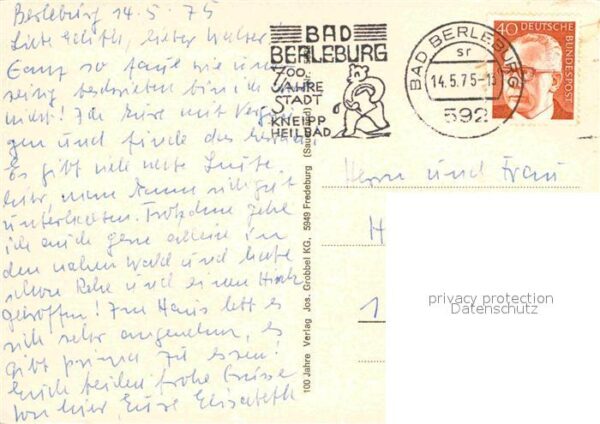 Berleburg 14.5.75
Liebe Edith, lieber Walter!
Ganz so faul wie
bin ich
nicht! Ich
gen und finde das
Es gibt viele nette Leute
hier, man kann sich gut
unterhalten. Trotzdem gehe
ich auch gern allein in
den nahen Wald und habe
schon Rehe und einen Hirsch
getroffen! Im Haus lebt es
sich sehr angenehm, es
gibt prima zu essen!
Euch beiden frohe Grüsse
von hier, Eure Elisabeth
BAD
BERLEBURG
700
JAHRE
STADT
KNEIPP
HEILBAD
BAD BERLEBURG 1
sr
14.5.75-13
592
40 DEUTSCHE
BUNDESPOST
100 Jahre Verlag Jos. Grobbel KG, 5949 Fredeburg
Herrn und Frau
H
1
privacy protection
Datenschutz